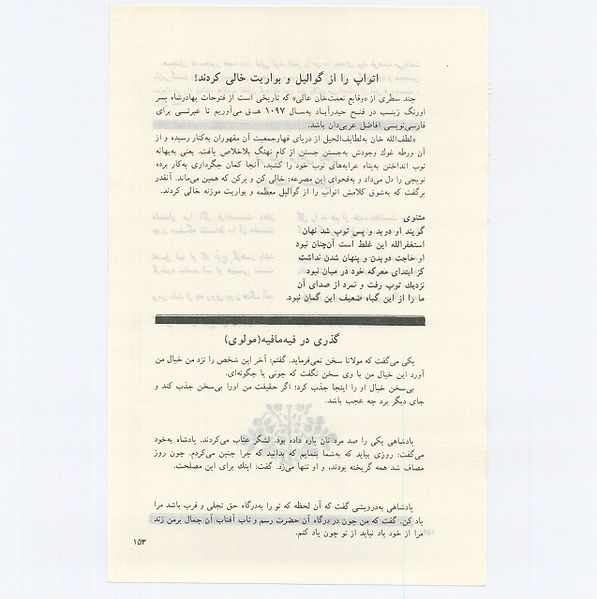 اتواپ را از گوالیل و بواریت خالی کردند!
چند سطری از «وقایع نعمت‌خان عالی» که تاریخی است از فتوحات بهادرشاه پسر
اورنگ زیسب در فتح حیدرآباد به‌سال ۱۰۹۷ ه‍.ق می‌آوریم تا عبرتی برای
فارسی‌نویسی افاضل عربی‌دان باشد.
«لطف‌الله خان به‌لطایف‌الحیل از دریای قهارجمعیت آن مقهوران به‌کنار رسید» و از
آن ورطه غوك وجودش به‌جستن جستن از کام نهنگ بلاخلاص یافت. یعنی به‌بهانه
توپ انداختن به‌پناه عرابه‌های توپ خود را کشید، آنجا کمان جگرداری به‌کار برده
توپچی را دل می‌داد و به‌فحوای این مصرعه: خالی کن و پرکن که همین می‌ماند. آنقدر
برگفت که به‌شوق کلامش اتواپ را از گوالیل معظمه و بواریت موزنه خالی کردند.
مثنوی
گویند او دوید و پس توپ شد نهان
استغفرالله این غلط است آن‌چنان نبود
او حاجت دویدن و پنهان شدن نداشت
کز ابتدای معرکه خود در میان نبود
نزدیك توپ رفت و نمرد از صدای آن
ما را از این گیاه ضعیف این گمان نبود.
گذری در فیه‌مافیه(مولوی)
یکی می‌گفت که مولانا سخن نمی‌فرماید. گفتم: آخر این شخص را نزد من خیال من
آورد این خیال من با وی سخن نگفت که چونی یا چگونه‌ای.
بی‌سخن خیال او را اینجا جذب کرد؛ اگر حقیقت من اورا بی‌سخن جذب کند و
جای دیگر برد چه عجب باشد.
پادشاهی یکی را صد مرد نان پاره داده بود. لشگر عتاب می‌کردند. پادشاه به‌خود
می‌گفت: روزی بیاید که به‌شما بنمایم که بدانید که چرا چنین می‌کردم. چون روز
مصاف شد همه گریخته بودند، و او تنها می‌زد. گفت: اینك برای این مصلحت.
پادشاهی به‌درویشی گفت که آن لحظه که تو را به‌درگاه حق تجلی و قرب باشد مرا
یاد کن. گفت که من چون در درگاه آن حضرت رسم و تاب آفتاب آن جمال برمن زند
مرا از خود یاد نیاید از تو چون یاد کنم.
۱۵۳